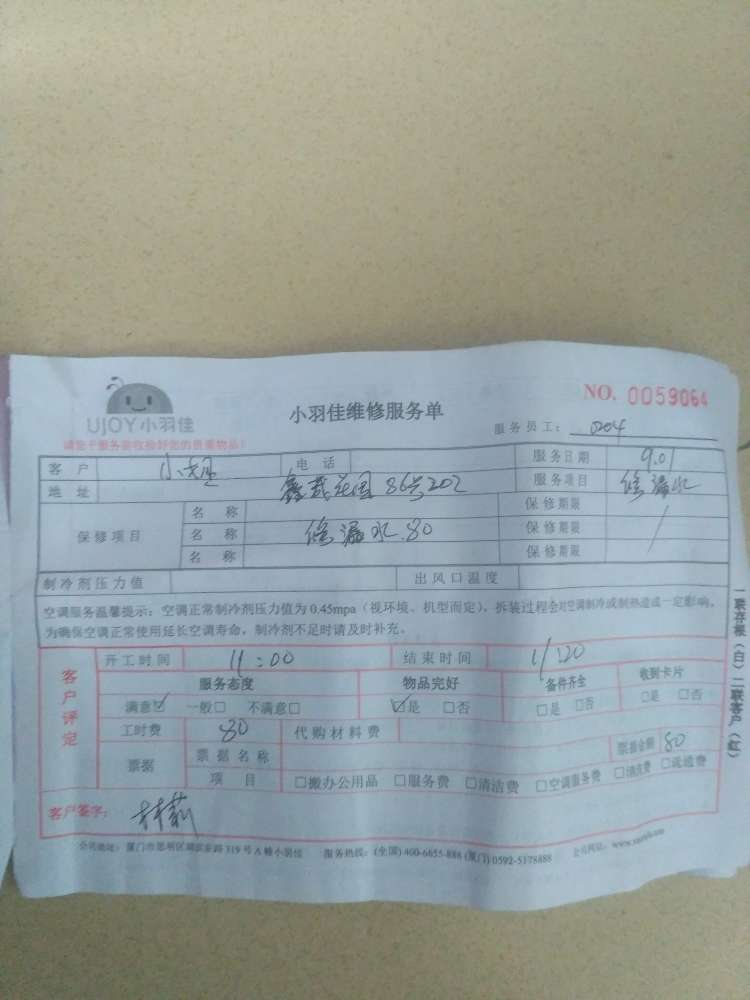 UJOY 小羽佳
请您于服务前收捡好您的贵重物品！
小羽佳维修服务单
NO. 0059064
服务员工：0204
客户 电话 服务日期 9.01
地址 86号202 服务项目 修漏水
保修项目 名称 保修期限
名称 修漏水 80 保修期限 /
名称 保修期限
制冷剂压力值 出风口温度
空调服务温馨提示：空调正常制冷剂压力值为 0.45mpa（视环境、机型而定），拆装过程会对空调制冷或制热造成一定影响，
为确保空调正常使用延长空调寿命，制冷剂不足时请及时补充。
客户评定
开工时间 11:00 结束时间 11:20
服务态度 物品完好 备件齐全 收到卡片
满意☑ 一般□ 不满意□ ☑是 □否 □是 □否 □是 □否
工时费 80 代购材料费
票据 票据名称 票据金额 80
项目 □搬办公用品 □服务费 □清洁费 □空调服务费 □清洗费 □疏通费
客户签字：林莉
公司地址：厦门市思明区湖滨东路 319 号 A 幢小羽佳 服务热线：(全国) 400-6655-886 (厦门) 0592-5178888 公司网站：
一联存根（白）二联客户（红）